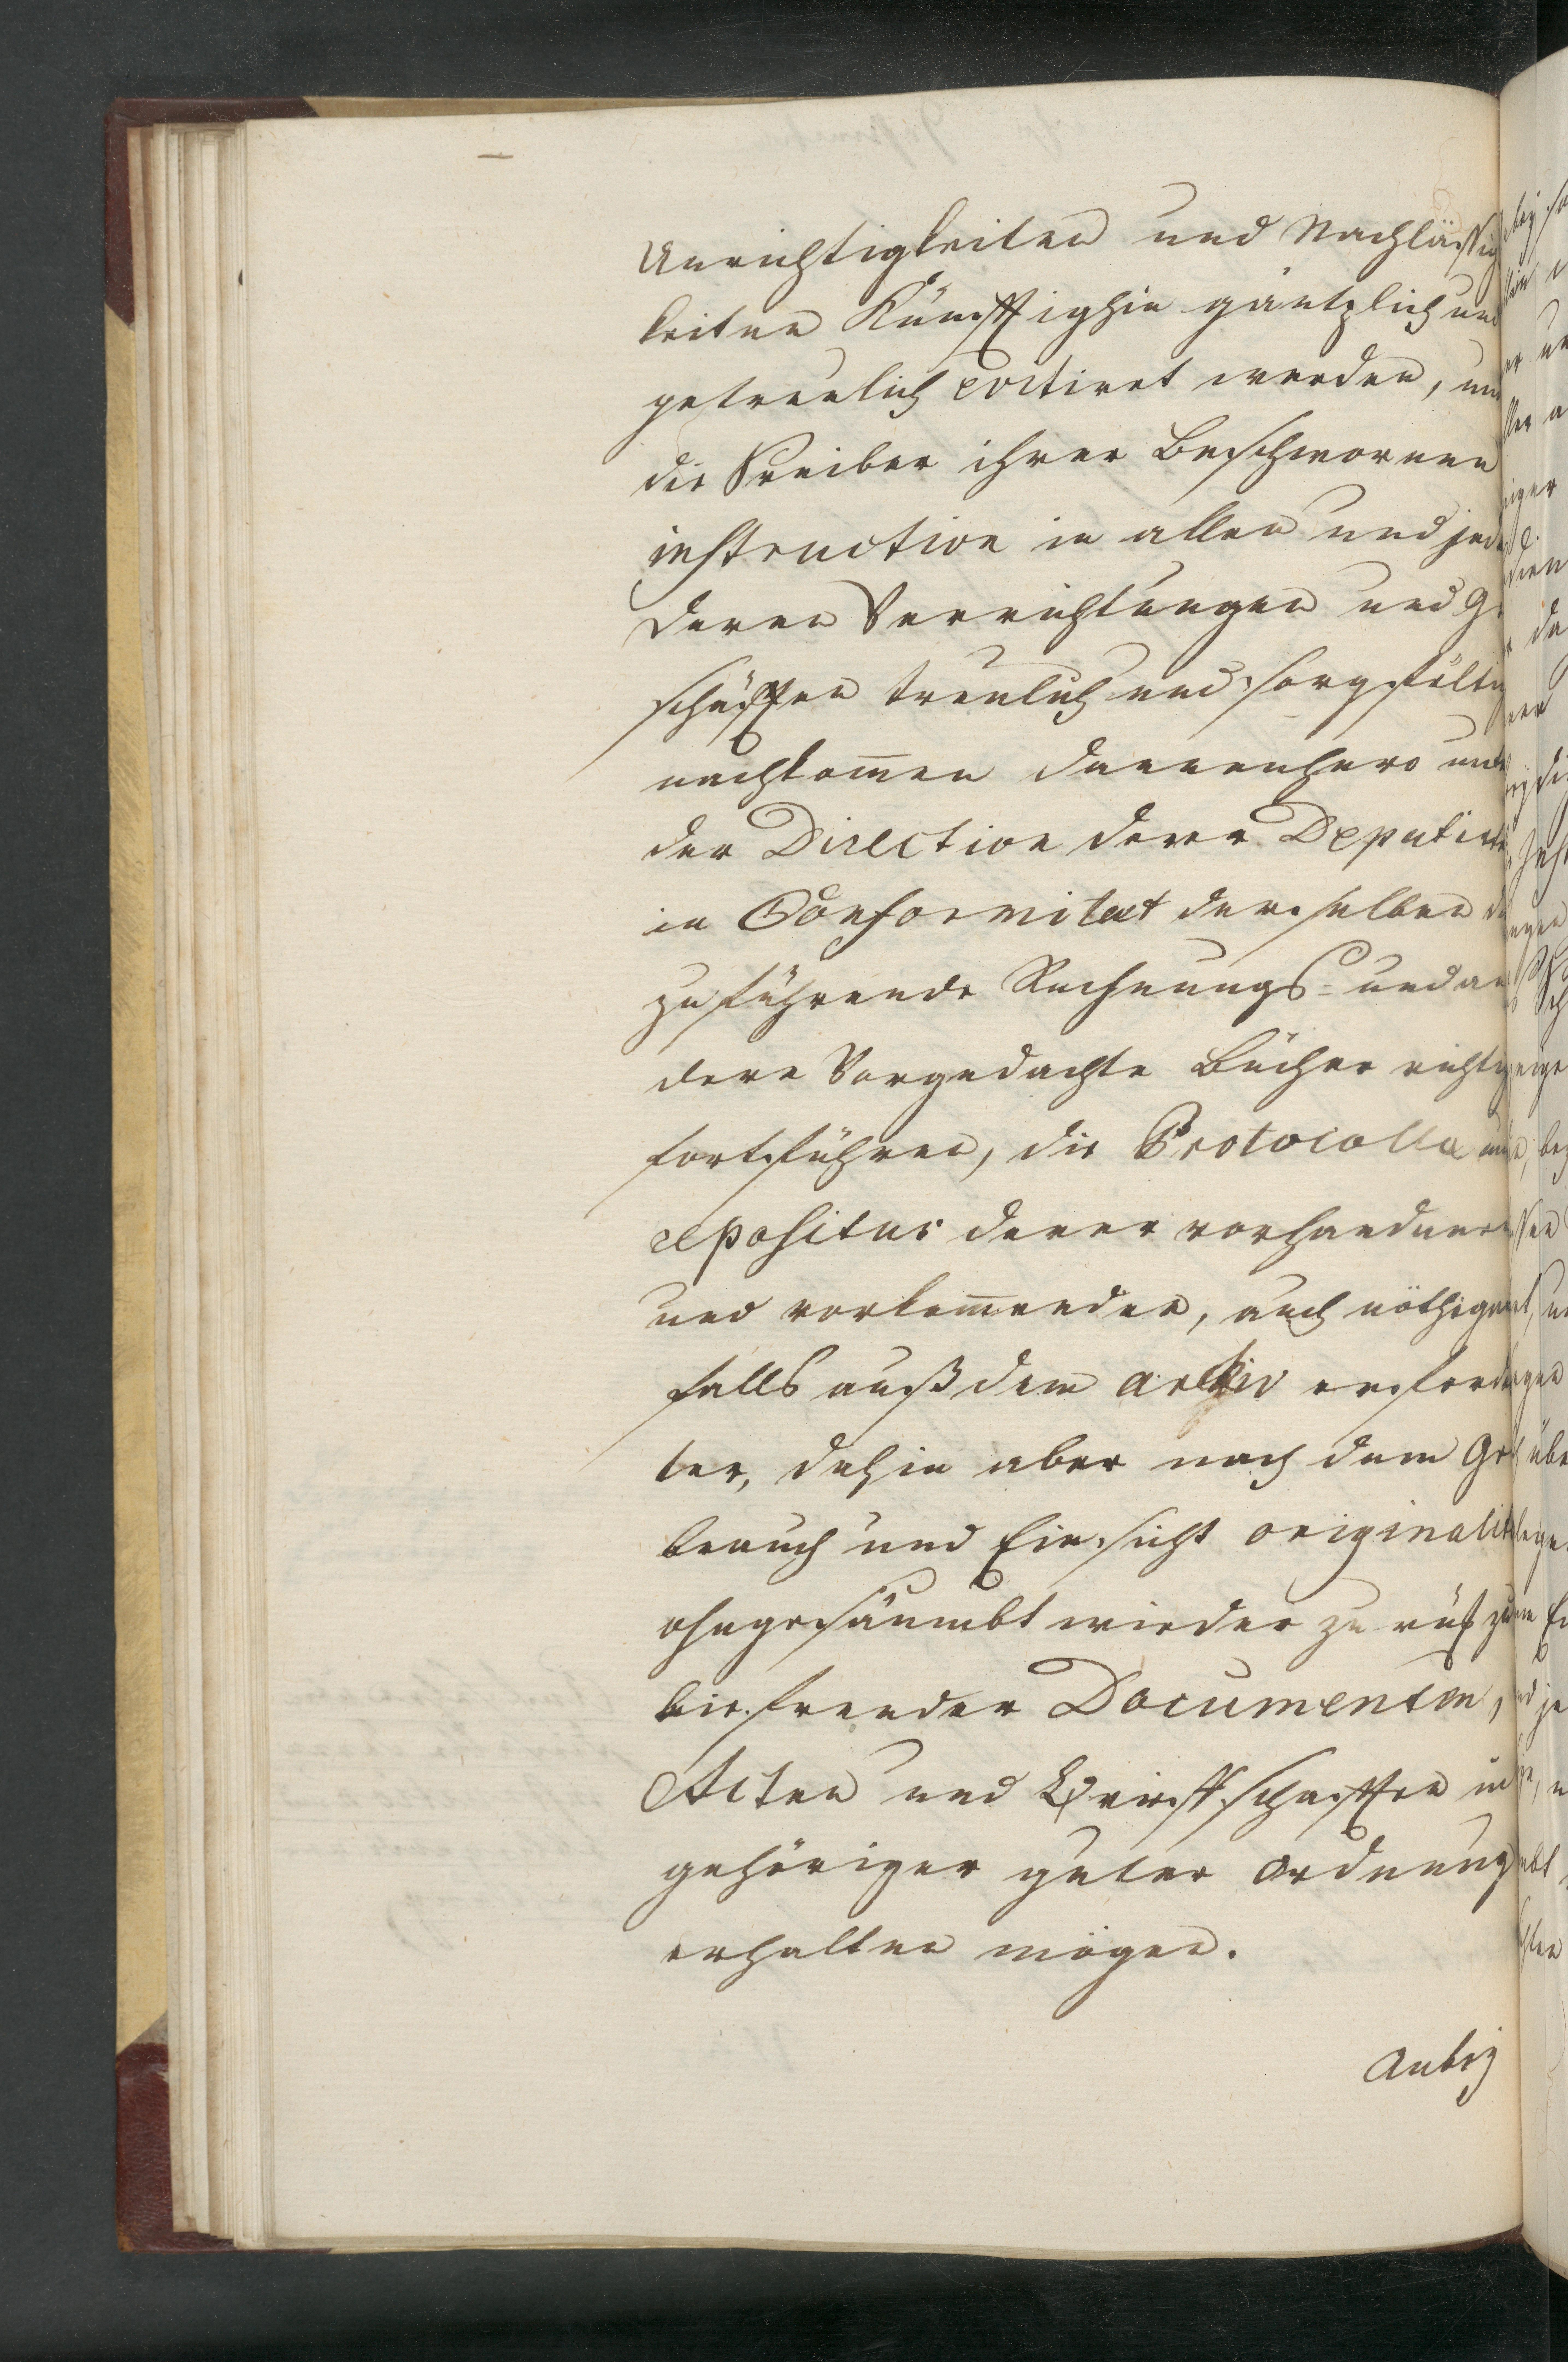 Unrichtigkeiten und Nachläßig
keiten Künfftighin gäntzlich und
getreulich evitiret werden, und
die Schreiber ihrer Beschwornen
instruction in allen und jeden
deren Verrichtungen und Ge
schäfften treulich und sorgfältig
nachkom̅en dannenhero unter
der Direction derer Deputirten
in Conformitæt derselben die
zu führende Rechnungs- und an
dere Vorgedachte Bücher richtig
fortführen, die Protocolla und
repositur derer vorhandenen
und vorkom̅enden, auch nöthigen
falls auß dem archiv erforder
ter, dahin aber nach dem Ge
brauch und Einsicht originalit
ohngesäumbt wieder zu rück zu
liefrender Documenten,
Acten und Brieffschafften in
gehöriger guter ordnung
erhalten mögen.
Anbey